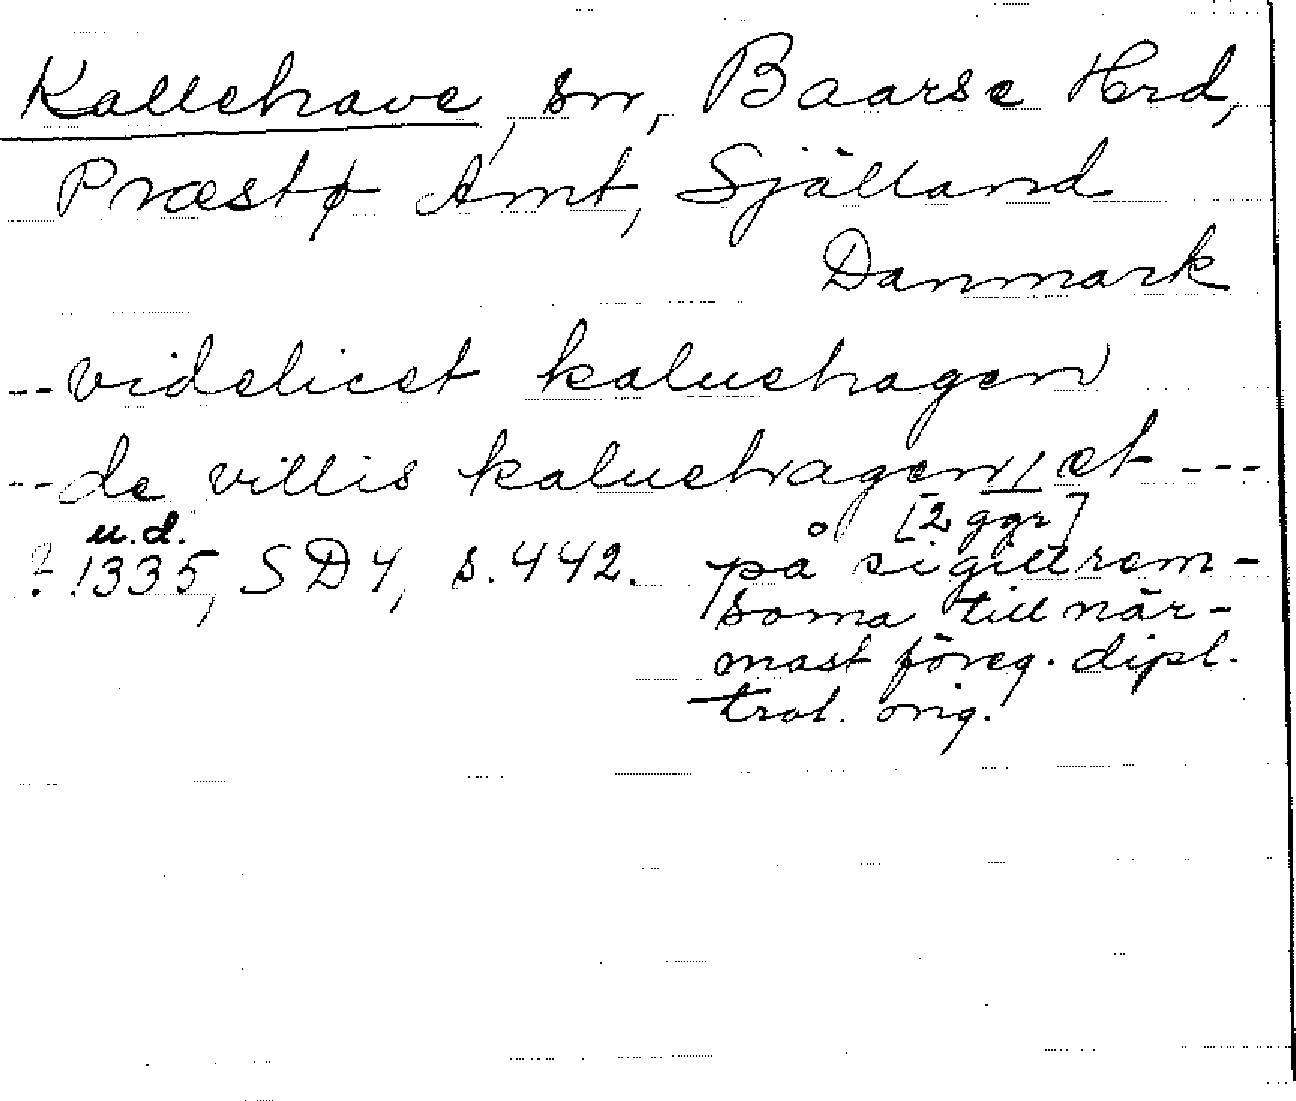 Kallehave, sn, Baarse Hrd,
Præstø Amt, Själland
Danmark
-- videlicet kaluehagen
-- de villis kaluehagen // et ---
[2 ggr]
u.d.
? 1335, SD 4, s. 442. på sigillrem-
sorna till när-
mast föreg. dipl.
trol. orig.